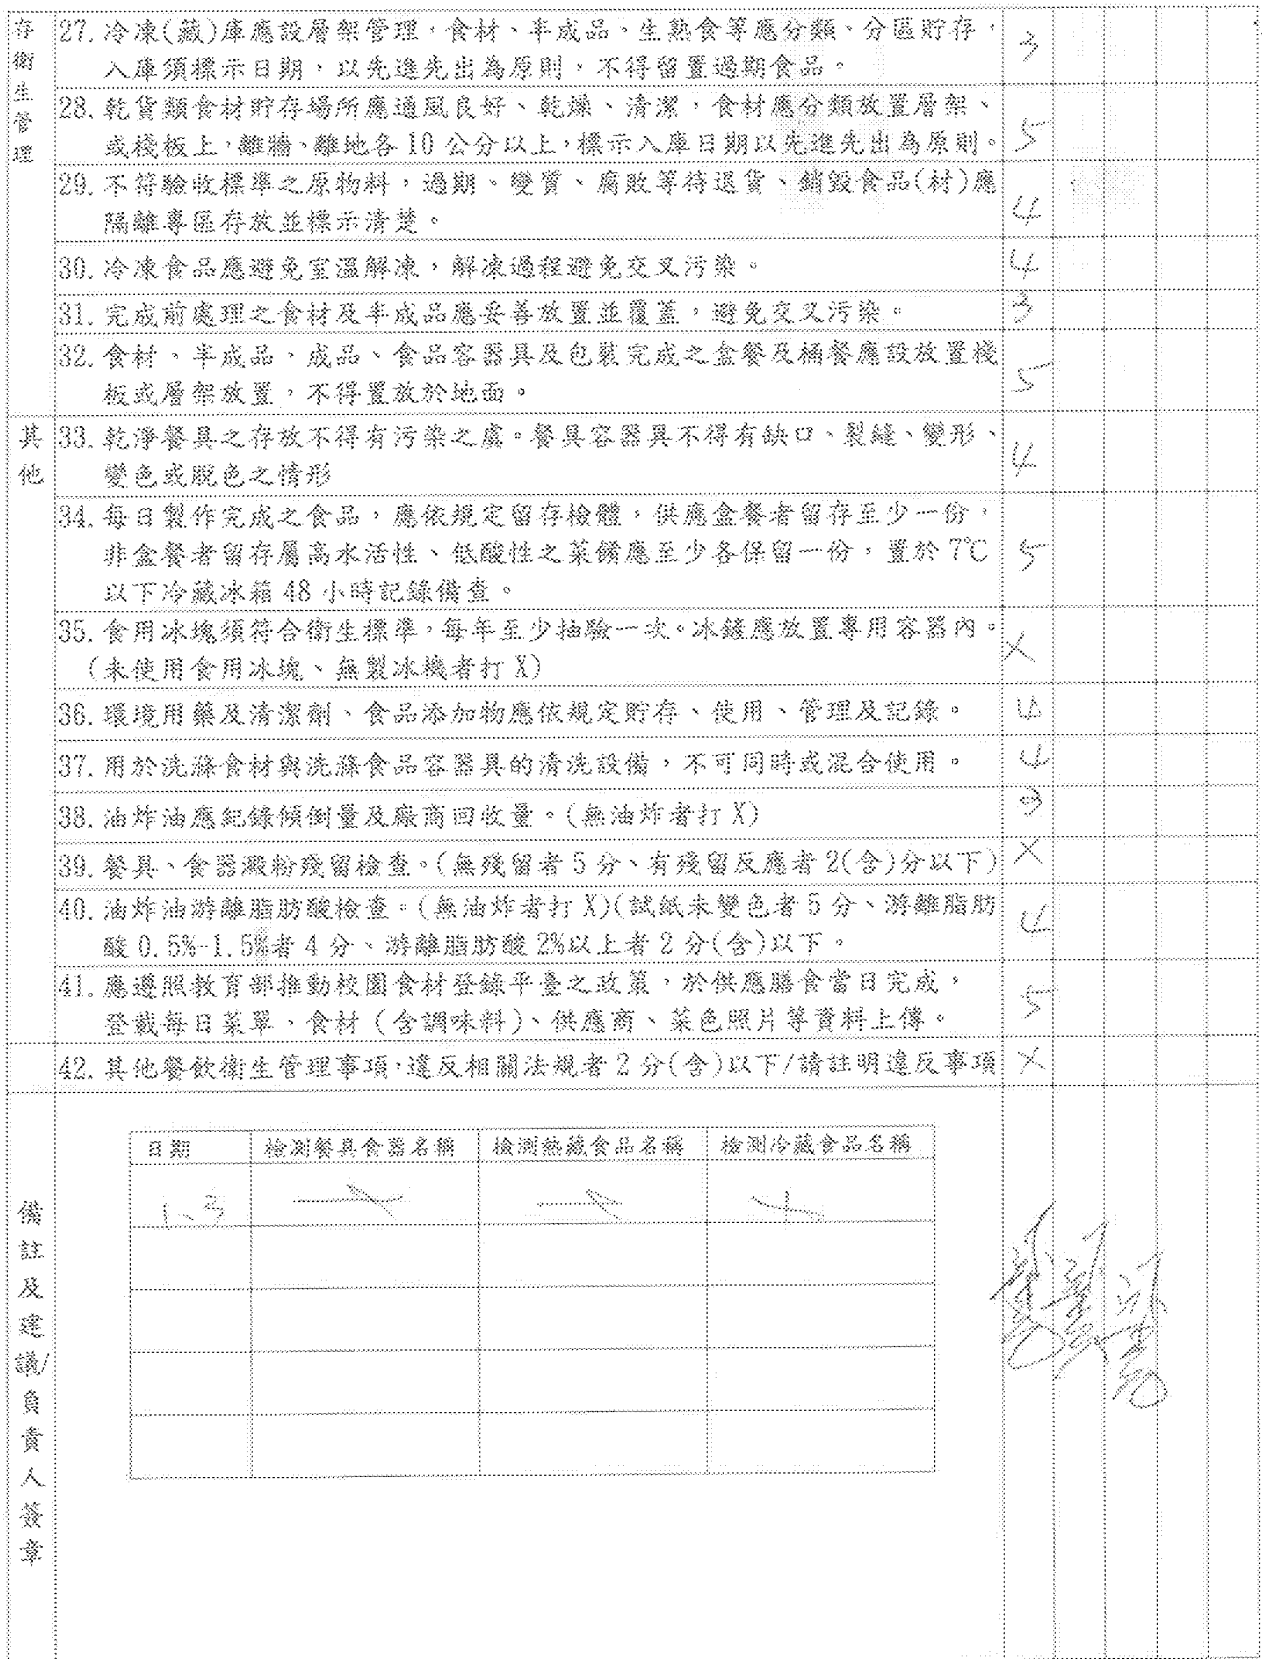 存衛生管理
27. 冷凍(藏)庫應設層架管理,食材、半成品、生熟食等應分類、分區貯存, 3
入庫須標示日期,以先進先出為原則,不得留置過期食品。
28. 乾貨類食材貯存場所應通風良好、乾燥、清潔,食材應分類放置層架、
或棧板上,離牆、離地各 10 公分以上,標示入庫日期以先進先出為原則。 5
29. 不符驗收標準之原物料,過期、變質、腐敗等待退貨、銷毀食品(材)應
隔離專區存放並標示清楚。 4
30. 冷凍食品應避免室溫解凍,解凍過程避免交叉污染。 4
31. 完成前處理之食材及半成品應妥善放置並覆蓋,避免交叉污染。 3
32. 食材、半成品、成品、食品容器具及包裝完成之盒餐及桶餐應設放置棧
板或層架放置,不得置放於地面。 5
其他
33. 乾淨餐具之存放不得有污染之虞。餐具容器具不得有缺口、裂縫、變形、
變色或脫色之情形 4
34. 每日製作完成之食品,應依規定留存檢體,供應盒餐者留存至少一份,
非盒餐者留存屬高水活性、低酸性之菜餚應至少各保留一份,置於 7℃ 5
以下冷藏冰箱 48 小時記錄備查。
35. 食用冰塊須符合衛生標準,每年至少抽驗一次。冰鏟應放置專用容器內。 X
(未使用食用冰塊、無製冰機者打 X)
36. 環境用藥及清潔劑、食品添加物應依規定貯存、使用、管理及記錄。 4
37. 用於洗滌食材與洗滌食品容器具的清洗設備,不可同時或混合使用。 4
38. 油炸油應紀錄傾倒量及廠商回收量。(無油炸者打 X) 3
39. 餐具、食器澱粉殘留檢查。(無殘留者 5 分、有殘留反應者 2(含)分以下) X
40. 油炸油游離脂肪酸檢查。(無油炸者打 X)(試紙未變色者 5 分、游離脂肪 4
酸 0.5%-1.5%者 4 分、游離脂肪酸 2%以上者 2 分(含)以下。
41. 應遵照教育部推動校園食材登錄平臺之政策,於供應膳食當日完成, 5
登載每日菜單、食材(含調味料)、供應商、菜色照片等資料上傳。
42. 其他餐飲衛生管理事項,違反相關法規者 2 分(含)以下/請註明違反事項 X
備註及建議/負責人簽章
日期 檢測餐具食器名稱 檢測熱藏食品名稱 檢測冷藏食品名稱